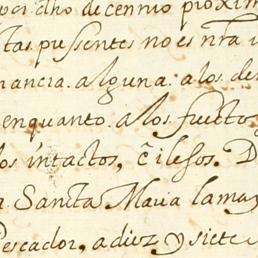 dho decennio proxim
tas pressentes no es nra i
nancia. alguna. a los de
enquanto. a los fuectos
los intactos, è ilesos. D
Sancta Maria lama
Pescador, a diez y siete